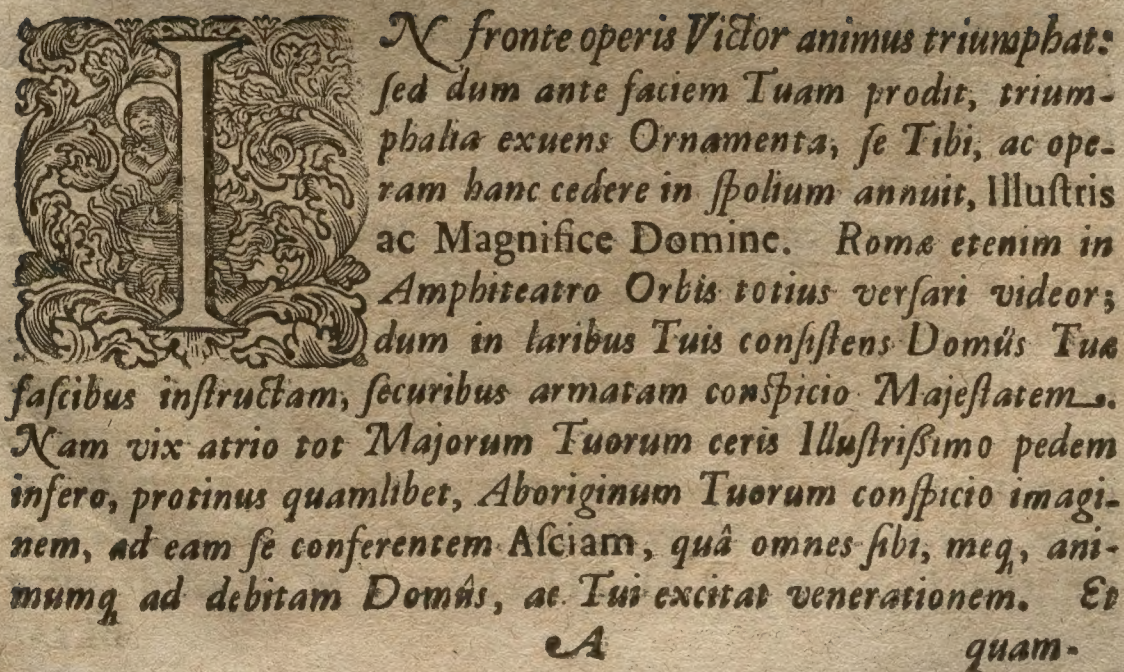 IN fronte operis Victor animus triumphat:
ſed dum ante faciem Tuam prodit, trium-
phalia exuens Ornamenta, ſe Tibi, ac ope-
ram hanc cedere in ſpolium annuit, Illuſtris
ac Magnifice Domine. Romæ etenim in
Amphiteatro Orbis totius verſari videor;
dum in laribus Tuis conſiſtens Domûs Tuæ
faſcibus inſtructam, ſecuribus armatam conſpicio Majeſtatem.
Nam vix atrio tot Majorum Tuorum ceris Illuſtriſsimo pedem
infero, protinus quamlibet, Aboriginum Tuorum conſpicio imagi-
nem, ad eam ſe conferentem Aſciam, quâ omnes ſibi, meq, ani-
mumq ad debitam Domûs, ac Tui excitat venerationem. Et
A quam-